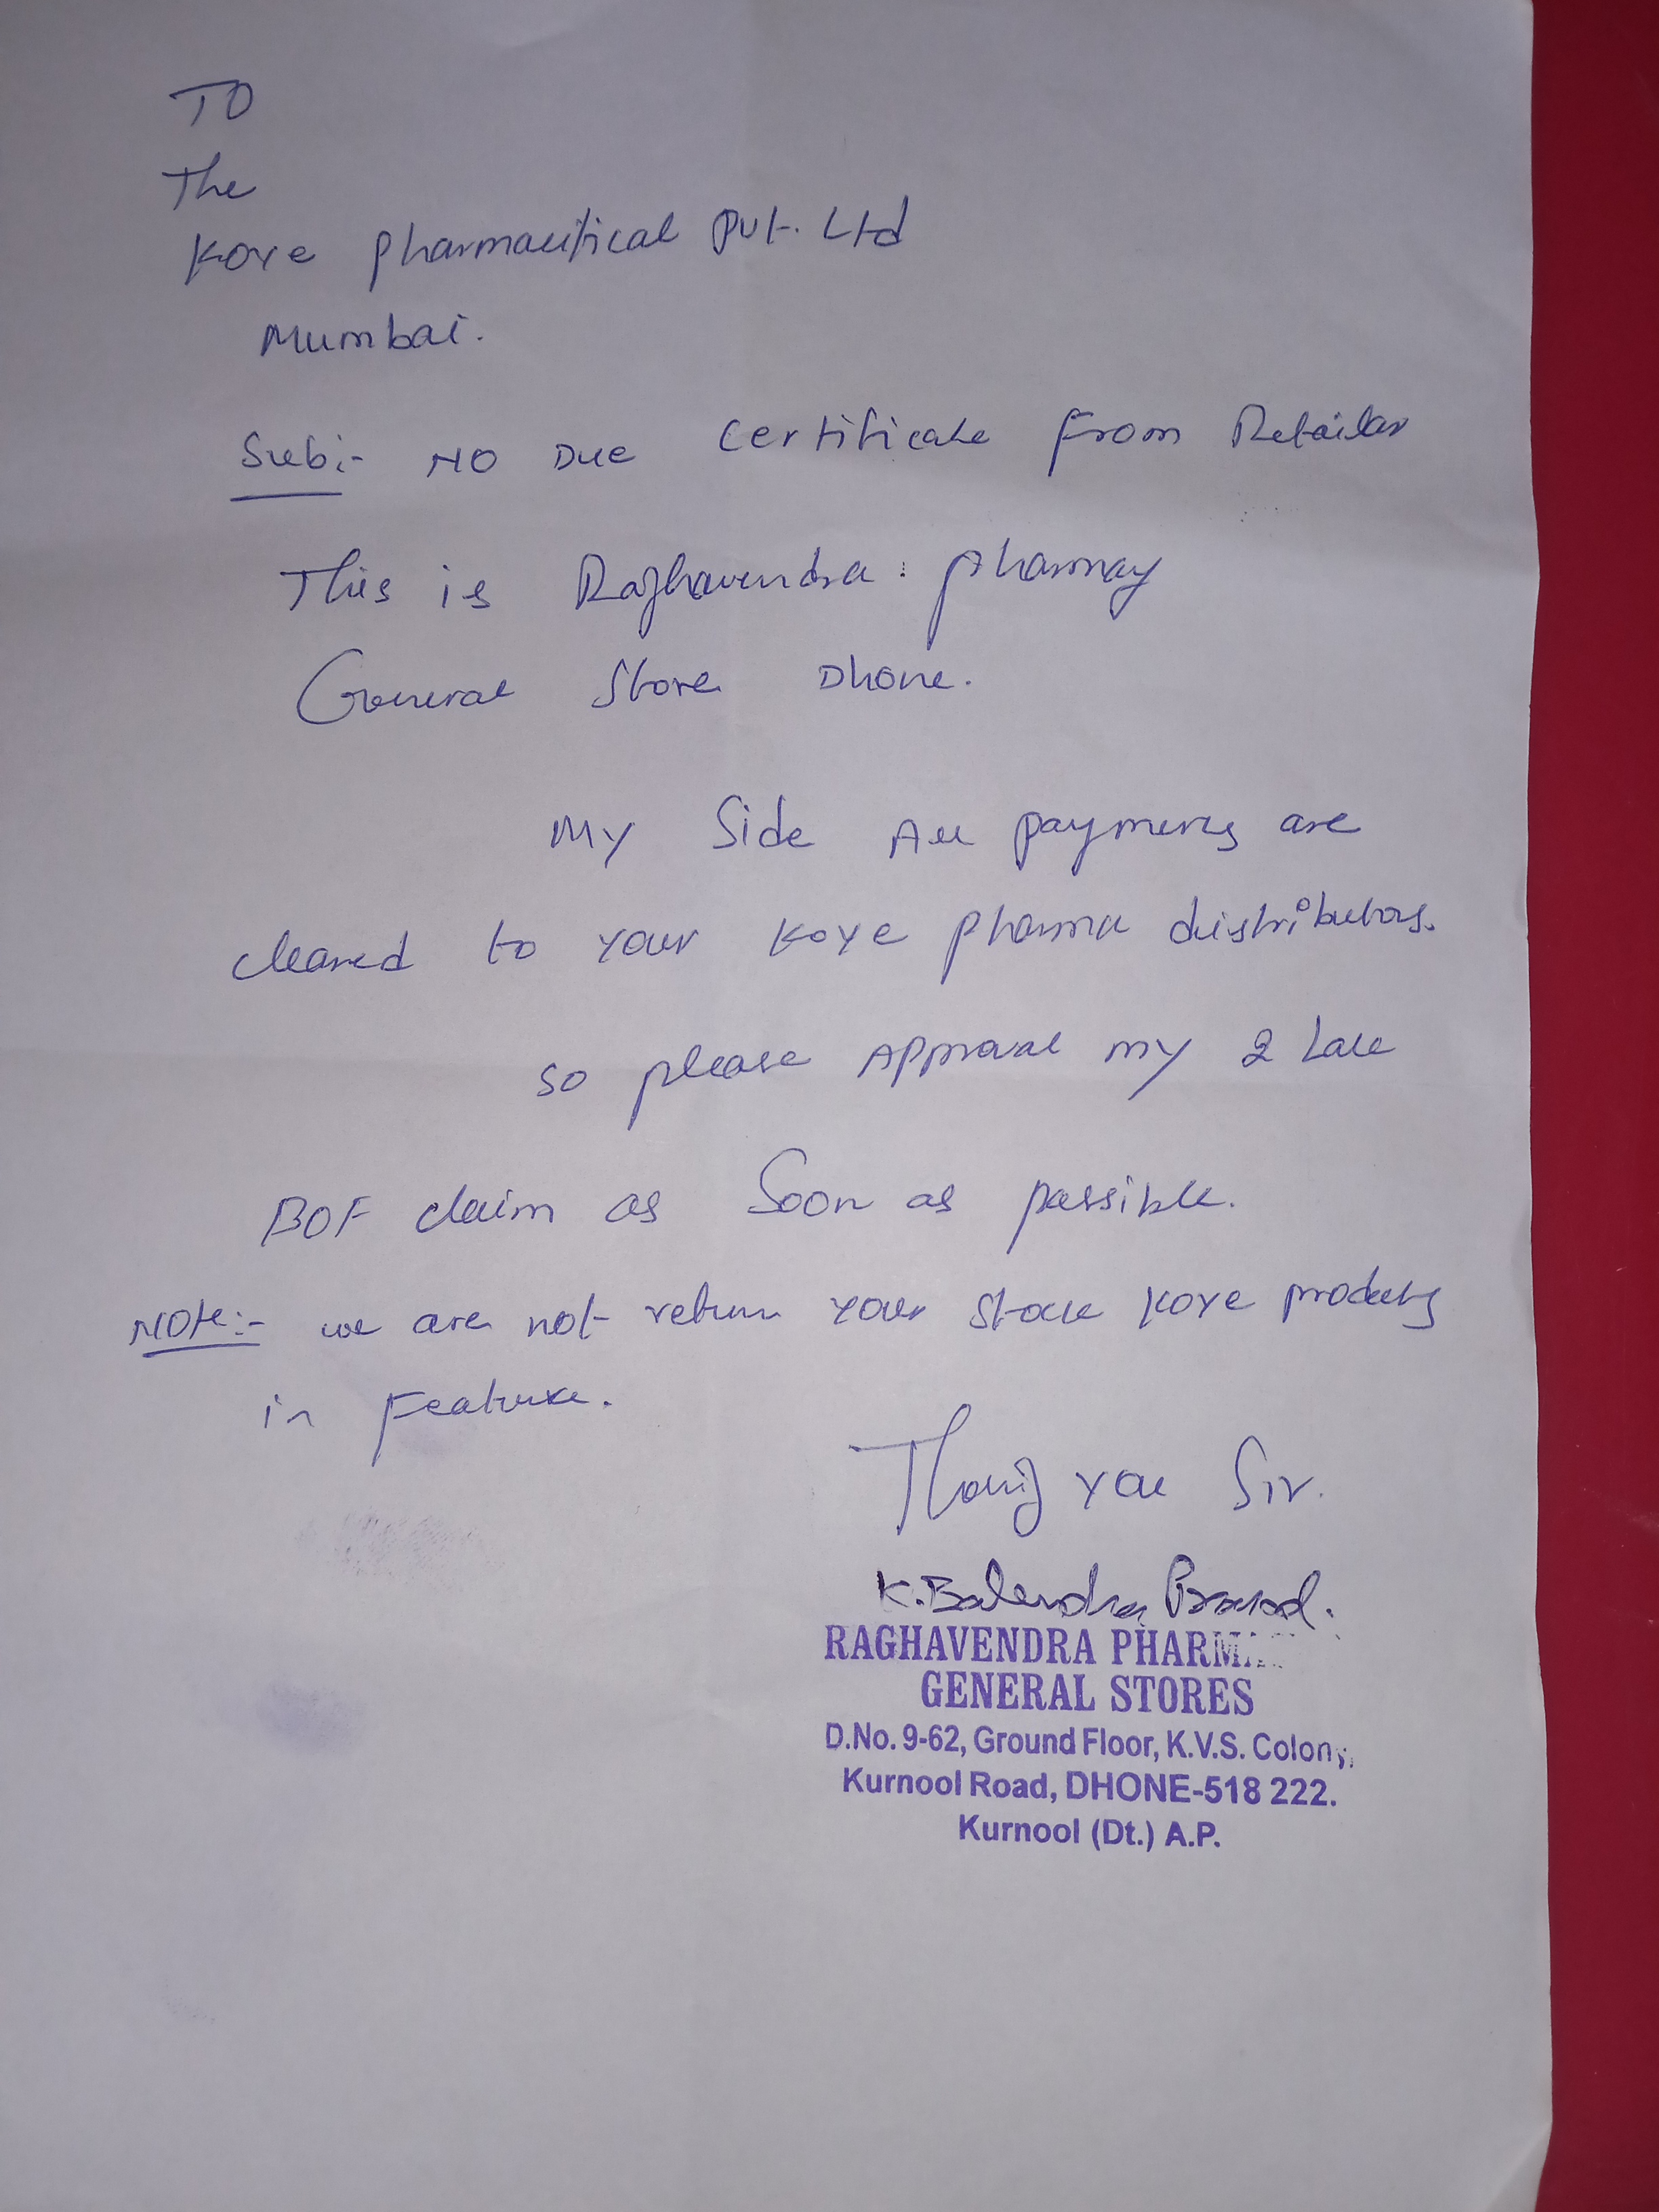 TO
The
Koye pharmaceutical pvt. Ltd
Mumbai.
Sub:- NO Due Certificate from Retailer
This is Raghavendra pharmacy
General Store Dhone.
My Side All payments are
cleared to your Koye pharma distributors.
so please Approval my 2 Lak
BOF claim as Soon as possible.
NOte:- we are not return your stock Koye products
in Feature.
Thanq you Sir.
K. Balendra Prasad.
RAGHAVENDRA PHARM
GENERAL STORES
D.No. 9-62, Ground Floor, K.V.S. Colony,
Kurnool Road, DHONE-518 222.
Kurnool (Dt.) A.P.